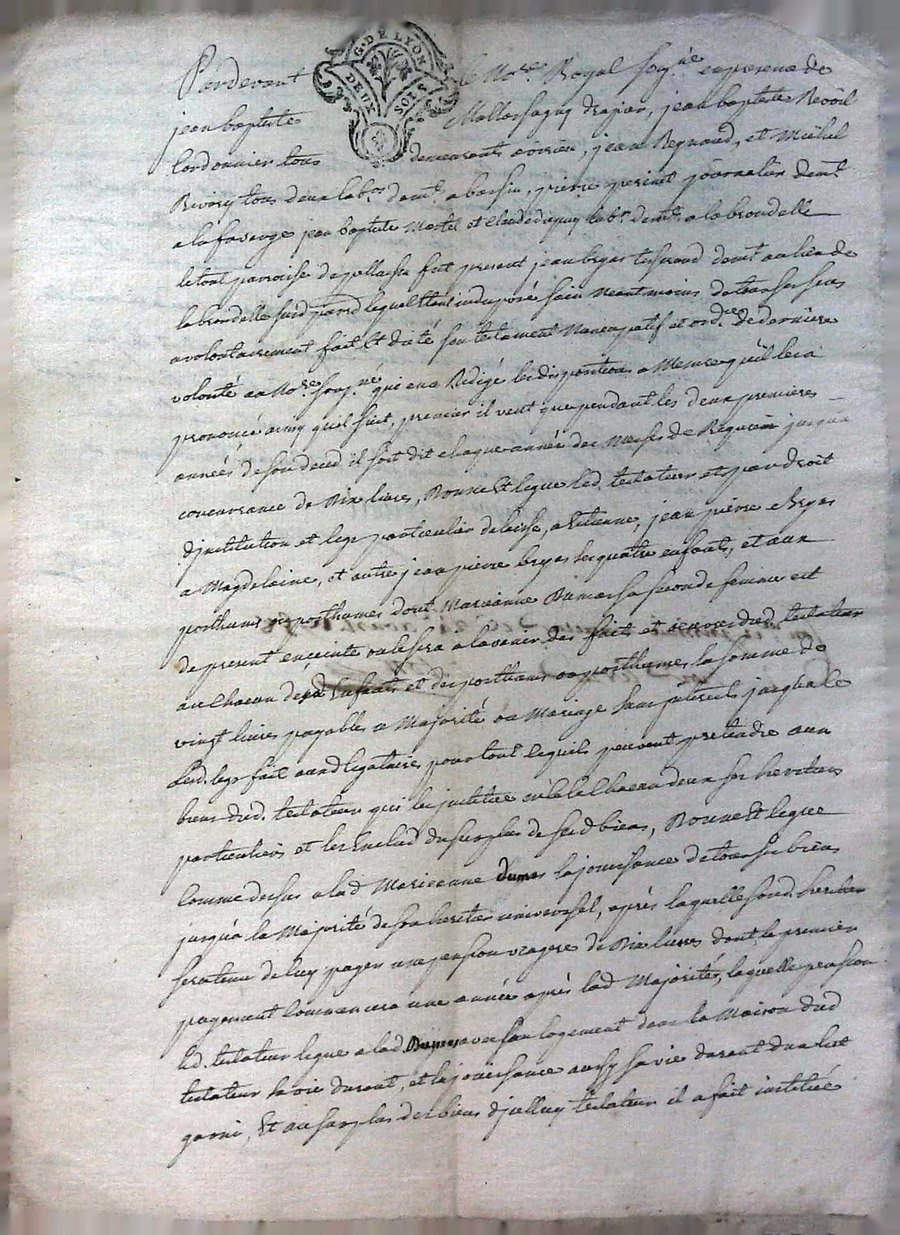 G. DE LYON
DEUX SOLS
Pardevant le No.re Royal soug.né en presence de
jean baptiste Mallossagny drapier, jean baptiste Revoil
Cordonnier tous demeurants a yzeron, jean Reynaud, et Michel
Rivory tous deux lab.rs dem.t a pierre perint journalier dem.t
a la favorge jean baptiste Martel et Claude dupuy lab.r dem.t a la brondelle
le tout parroisse de fut present jean bryas tisserand dem.t au lieu de
la brondelle susd. lequel etant indisposé sain neantmoins de tous ses sens
a volontairement fait et dicté son testament nuncupatif et ord.re de derniere
volonté au No.re soug.né qui en a Redigé les dispositions a Mesure qu'il les a
prononcé ainsy qu'il suit, premier il veut que pendant les deux premieres
années de son deced il soit dit chaque année des Messes de Requiem jusqu'a
concurrance de Dix livres, Donne et legue led. testateur et par droit
d'institution et legs particulier delaisse, a Etienne, jean pierre bryas
a Magdelaine, et autre jean pierre bryas ses quatre enfants, et aux
posthume ou posthumes dont Marianne Dumas sa seconde femme est
de present enceinte ou le sera a l'avenir des faits et oeuvres dud. testateur
au Chacun desd. Enfants et des posthume ou posthumes, la somme de
vingt livres payable a Majorité ou Mariage sans interets jusqu'a le
led. legs fait auxd. legataires pour tout lequels peuvent pretendre aux
biens dud. testateur qui les institue Chacun d'eux ses heritiers
particuliers et les Exclud du surplus de sesd. biens, Donne et legue
Comme dessus a lad. Marianne dumas la jouissance de tous ses biens
jusqu'a la Majorité de son heritier universel, après laquelle sond. heritier
sera tenu de luy payer une pension viagere de Dix livres dont le premier
payement Commencera une année après lad. Majorité, laquelle pension
led. testateur legue a lad. Dumas avec son logement dans la Maison dud.
testateur sa vie durant, et la jouissance aussy sa vie durant d'un lict
garni, Et au surplus des biens d'jcelluy testateur il a fait institué